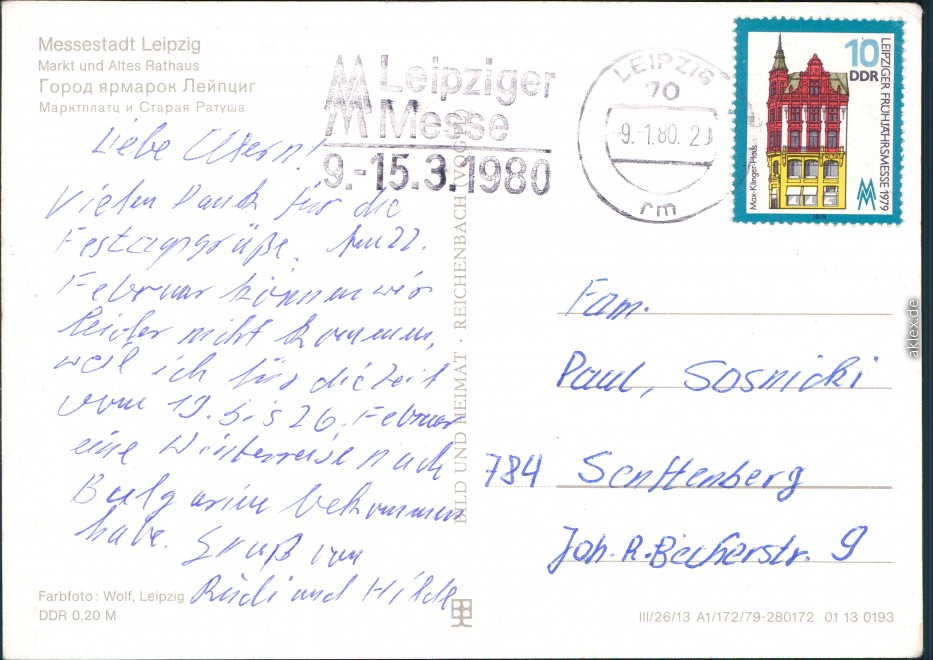 Messestadt Leipzig
Markt und Altes Rathaus
Город ярмарок Лейпциг
Марктплатц и Старая Ратуша
Liebe Eltern!
Vielen Dank für die
Festagsgrüße. Am 22.
Februar können wir
leider nicht kommen,
weil ich für die Zeit
vom 19. bis 26. Februar
eine Winterreise nach
Bulgarien bekommen
habe. Gruß von
Rudi und Hilde
Farbfoto: Wolf, Leipzig
DDR 0,20 M
Leipziger
Messe
9.-15.3.1980
BILD UND HEIMAT · REICHENBACH (VOGTL)
LEIPZIG
70
-9.-1.80. 2
rm
10
DDR
LEIPZIGER FRÜHJAHRSMESSE 1979
Max-Klinger-Haus
1979
Fam.
Paul, Sosnicki
784 Senftenberg
Joh.-R.-Becherstr. 9
III/26/13 A1/172/79-280172 01 13 0193
aklex.de